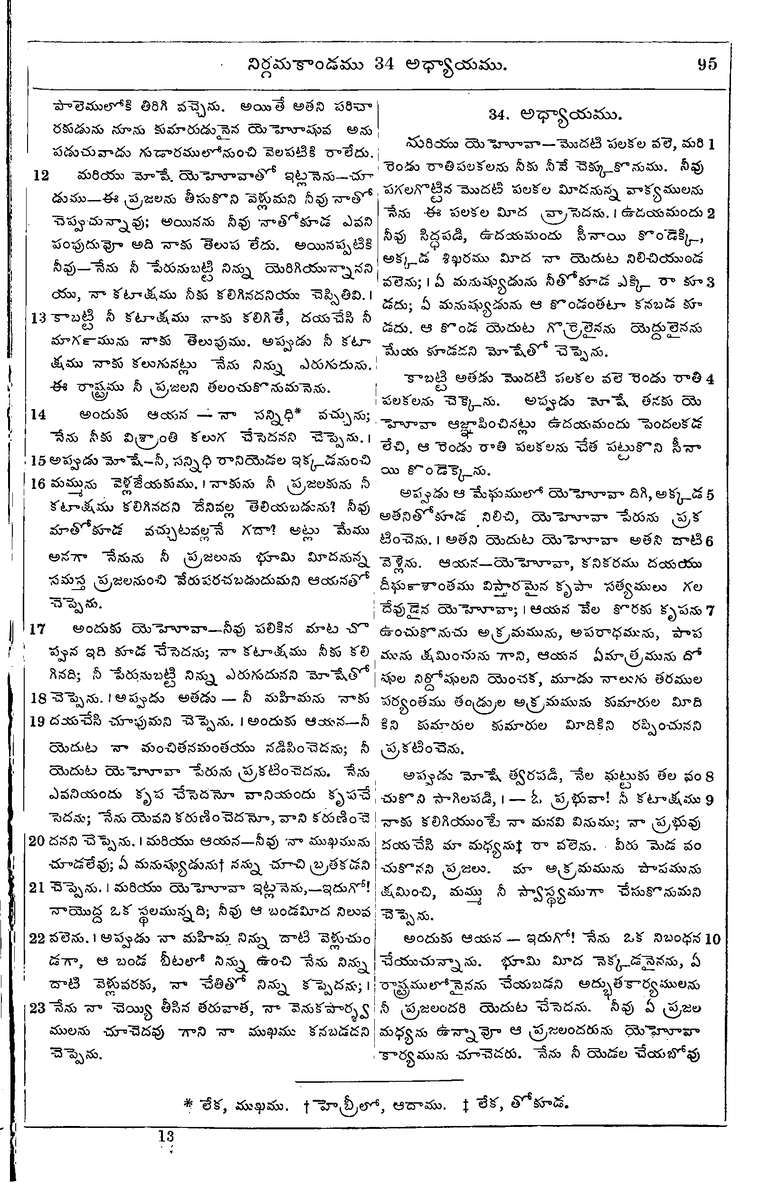 నిర్గమకాండము 34 అధ్యాయము. 95
పాలెములోకి తిరిగి వచ్చెను. అయితే అతని పరిచా
రకుడును నూను కుమారుడునైన యెహెూషువ అను
పడుచువాడు గుడారములోనుంచి వెలపటికి రాలేదు.
12 మరియు మోషే యెహెూవాతో ఇట్లనెను—చూ
డుము—ఈ ప్రజలను తీసుకొని వెళ్లుమని నీవు నాతో
చెప్పుచున్నావు; అయినను నీవు నాతోకూడ ఎవని
పంపుదువో అది నాకు తెలుప లేదు. అయినప్పటికి
నీవు—నేను నీ పేరునుబట్టి నిన్ను యెరిగియున్నానని
యు, నా కటాక్షము నీకు కలిగినదనియు చెప్పితివి. ।
13 కాబట్టి నీ కటాక్షము నాకు కలిగితే, దయచేసి నీ
మార్గమును నాకు తెలుపుము. అప్పుడు నీ కటా
క్షము నాకు కలుగునట్లు నేను నిన్ను ఎరుగుదును.
ఈ రాష్ట్రము నీ ప్రజలని తలంచుకొనుమనెను.
14 అందుకు ఆయన — నా సన్నిధి* వచ్చును;
నేను నీకు విశ్రాంతి కలుగ చేసెదనని చెప్పెను. ।
15 అప్పుడు మోషే—నీ, సన్నిధి రానియెడల ఇక్కడనుంచి
16 మమ్మును వెళ్లజేయకుము. । నాకును నీ ప్రజలకును నీ
కటాక్షము కలిగినదని దేనివల్ల తెలియబడును? నీవు
మాతోకూడ వచ్చుటవల్లనే గదా! అట్లు మేము
అనగా నేనును నీ ప్రజలును భూమి మీదనున్న
సమస్త ప్రజలనుంచి వేరుపరచబడుదుమని ఆయనతో
చెప్పెను.
17 అందుకు యెహెూవా—నీవు పలికిన మాట చొ
ప్పున ఇది కూడ చేసెదను; నా కటాక్షము నీకు కలి
గినది; నీ పేరునుబట్టి నిన్ను ఎరుగుదునని మోషేతో
18 చెప్పెను. । అప్పుడు అతడు — నీ మహిమను నాకు
19 దయచేసి చూపుమని చెప్పెను. । అందుకు ఆయన—నీ
యెదుట నా మంచితనమంతయు నడిపించెదను; నీ
యెదుట యెహెూవా పేరును ప్రకటించెదను. నేను
ఎవనియందు కృప చేసెదనో వానియందు కృపచే
సెదను; నేను యెవని కరుణించెదనో, వాని కరుణించె
20 దనని చెప్పెను. । మరియు ఆయన—నీవు నా ముఖమును
చూడలేవు; ఏ మనుష్యుడును† నన్ను చూచి బ్రతకడని
21 చెప్పెను. । మరియు యెహెూవా ఇట్లనెను,—ఇదుగో!
నాయొద్ద ఒక స్థలమున్నది; నీవు ఆ బండమీద నిలువ
22 వలెను. । అప్పుడు నా మహిమ నిన్ను దాటి వెళ్లుచుం
డగా, ఆ బండ బీటలో నిన్ను ఉంచి నేను నిన్ను
దాటి వెళ్లువరకు, నా చేతితో నిన్ను కప్పెదను; ।
23 నేను నా చెయ్యి తీసిన తరువాత, నా వెనుకపార్శ్వ
ములను చూచెదవు గాని నా ముఖము కనబడదని
చెప్పెను.
34. అధ్యాయము.
మరియు యెహెూవా—మొదటి పలకల వలె, మరి 1
రెండు రాతిపలకలను నీకు నీవే చెక్కుకొనుము. నీవు
పగలగొట్టిన మొదటి పలకల మీదనున్న వాక్యములను
నేను ఈ పలకల మీద వ్రాసెదను. । ఉదయమందు 2
నీవు సిద్ధపడి, ఉదయమందు సీనాయి కొండెక్కి,
అక్కడ శిఖరము మీద నా యెదుట నిలిచియుండ
వలెను; । ఏ మనుష్యుడును నీతోకూడ ఎక్కి రా కూ 3
డదు; ఏ మనుష్యుడును ఆ కొండంతటా కనబడ కూ
డదు. ఆ కొండ యెదుట గొర్రెలైనను యెద్దులైనను
మేయ కూడదని మోషేతో చెప్పెను.
కాబట్టి అతడు మొదటి పలకల వలె రెండు రాతి 4
పలకలను చెక్కెను. అప్పుడు మోషే తనకు యె
హెూవా ఆజ్ఞాపించినట్లు ఉదయమందు పెందలకడ
లేచి, ఆ రెండు రాతి పలకలను చేత పట్టుకొని సీనా
యి కొండెక్కెను.
అప్పుడు ఆ మేఘములో యెహెూవా దిగి, అక్కడ 5
అతనితోకూడ నిలిచి, యెహెూవా పేరును ప్రక
టించెను. । అతని యెదుట యెహెూవా అతని దాటి 6
వెళ్లెను. ఆయన—యెహెూవా, కనికరము దయయు
దీర్ఘశాంతము విస్తారమైన కృపా సత్యములు గల
దేవుడైన యెహెూవా; । ఆయన వేల కొరకు కృపను 7
ఉంచుకొనుచు అక్రమమును, అపరాధమును, పాప
మును క్షమించును గాని, ఆయన ఏమాత్రమును దో
షుల నిర్దోషులని యెంచక, మూడు నాలుగు తరముల
పర్యంతము తండ్రుల అక్రమమును కుమారుల మీది
కిని కుమారుల కుమారుల మీదికిని రప్పించునని
ప్రకటించెను.
అప్పుడు మోషే త్వరపడి, నేల ఘట్టుకు తల వం 8
చుకొని సాగిలపడి, । — ఓ ప్రభువా! నీ కటాక్షము 9
నాకు కలిగియుంటే నా మనవి వినుము; నా ప్రభువు
దయచేసి మా మధ్యను‡ రా వలెను. వీరు మెడ వం
చుకొనని ప్రజలు. మా అక్రమమును పాపమును
క్షమించి, మమ్ము నీ స్వాస్థ్యముగా చేసుకొనుమని
చెప్పెను.
అందుకు ఆయన — ఇదుగో! నేను ఒక నిబంధన 10
చేయుచున్నాను. భూమి మీద నెక్కడనైనను, ఏ
రాష్ట్రములోనైనను చేయబడని అద్భుతకార్యములను
నీ ప్రజలందరి యెదుట చేసెదను. నీవు ఏ ప్రజల
మధ్యను ఉన్నావో ఆ ప్రజలందరును యెహెూవా
కార్యమును చూచెదరు. నేను నీ యెడల చేయబోవు
* లేక, ముఖము. † హెబ్రీలో, ఆదాము. ‡ లేక, తోకూడ.
13